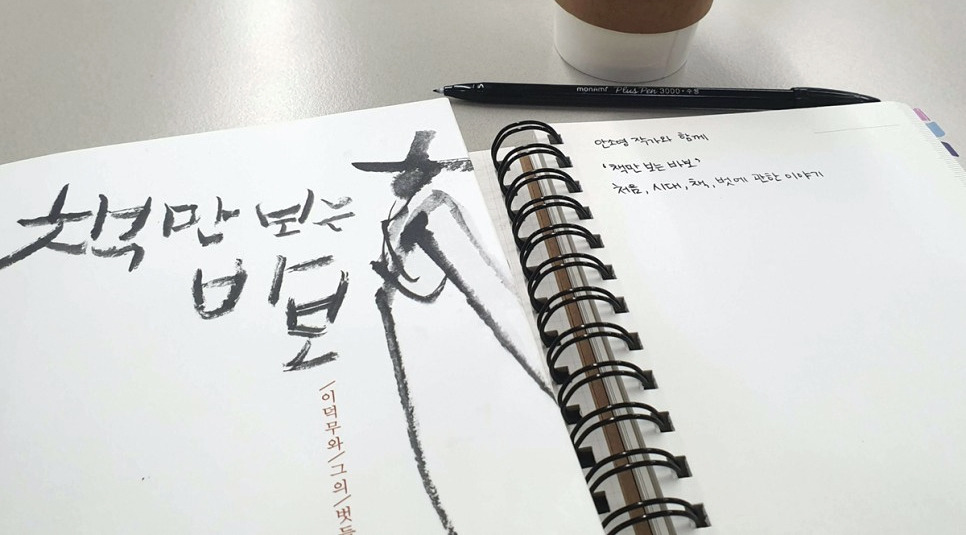 책만 보는
바보
/이덕무와/그의/벗들
monami Plus Pen 3000·수성
안소영 작가와 함께
'책만 보는 바보'
처음, 시대, 책, 벗에 관한 이야기